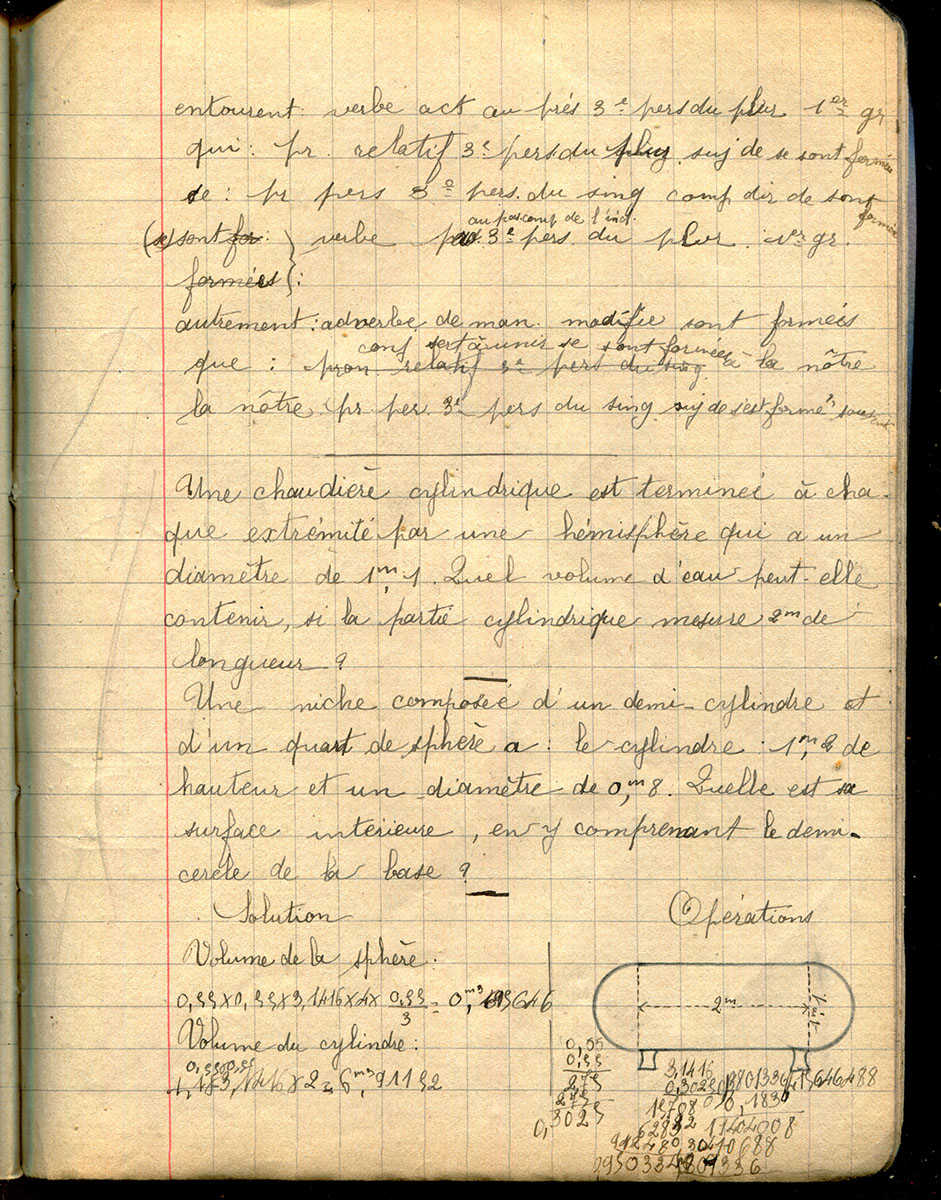 entourent: verbe act au prés 3e pers du plur 1er gr
qui: pr. relatif 3e pers du plur suj de se sont formées
se: pr pers 3e pers. du sing comp dir de sont formées
au pas comp de l'ind.
(se) sont for } verbe pas. 3e pers. du plur. 1er gr.
formées } :
autrement: adverbe de man. modifie sont formées
conj sert à unir se sont formées à la nôtre
que: pron relatif 3e pers du sing
la nôtre pr per. 3e pers du sing suj de s'est formé
Une chaudière cylindrique est terminei à cha-
que extrémité par une hémisphère qui a un
diamètre de 1m,1. Quel volume d'eau peut-elle
contenir, si la partie cylindrique mesure 2m de
longueur ?
Une niche composée d'un demi-cylindre et
d'un quart de sphère a: le cylindre: 1m,2 de
hauteur et un diamètre de 0,m8. Quelle est sa
surface intérieure, en y comprenant le demi-
cercle de la base ?
Solution
Opérations
Volume de la sphère:
0,55 x 0,55 x 3,1416 x 4 x 0,55 / 3 = 0,m3 695646
2m
Volume du cylindre:
0,55 0,55
x 2 = 6,m3 91152
0,55
0,55
275
275
0,3025
3,1416
0,3025
15708
62832